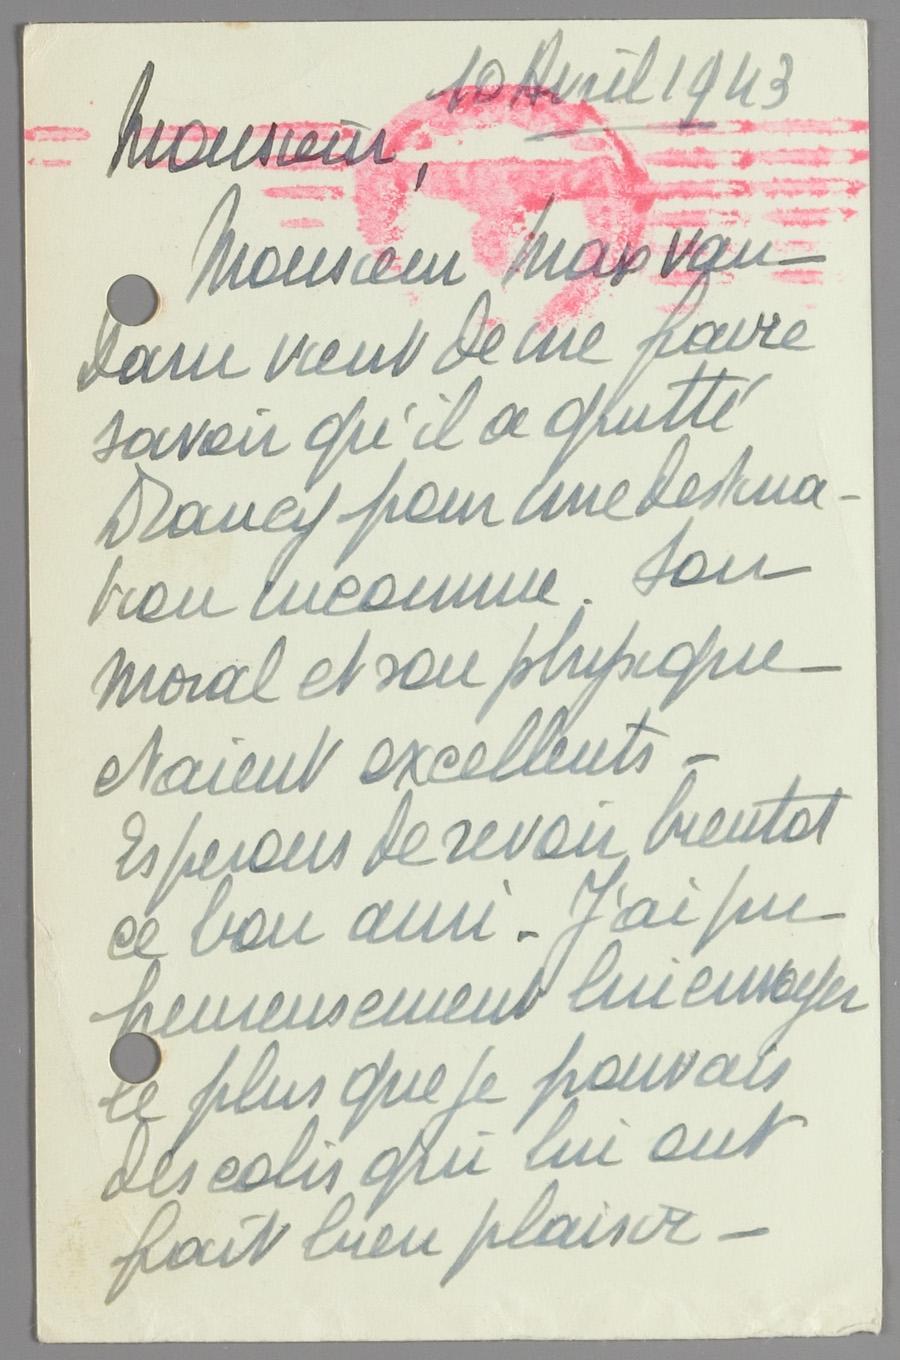 10 Avril 1943
Monsieur,
Monsieur Max Van
Dam vient de me faire
savoir qu'il a quitté
Drancy pour une destina-
tion inconnue. Son
moral et son physique
etaient excellents -
Esperons de revoir bientot
ce bon ami - J'ai pu
heureusement lui envoyer
le plus que je pouvais
des colis qui lui ont
fait bien plaisir -